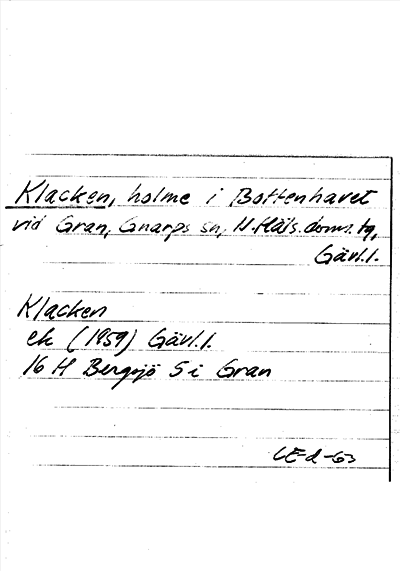 Klacken, holme i Bottenhavet
vid Gran, Gnarps sn, N. Häls. doms. tg,
Gävl. l.
Klacken
ek (1959) Gävl. l.
16 H Bergsjö S i Gran